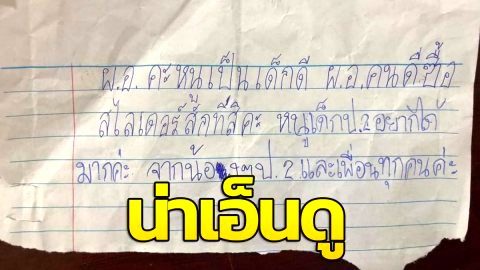 ผ.อ. คะหนูเป็นเด็กดี ผ.อ.คนดีซื้อ
สไลเดอร์สักที่สิคะ หนูเด็กป.2อยากได้
มากค่ะ จากน้องๆป.2และเพื่อนทุกคนค่ะ
น่าเอ็นดู